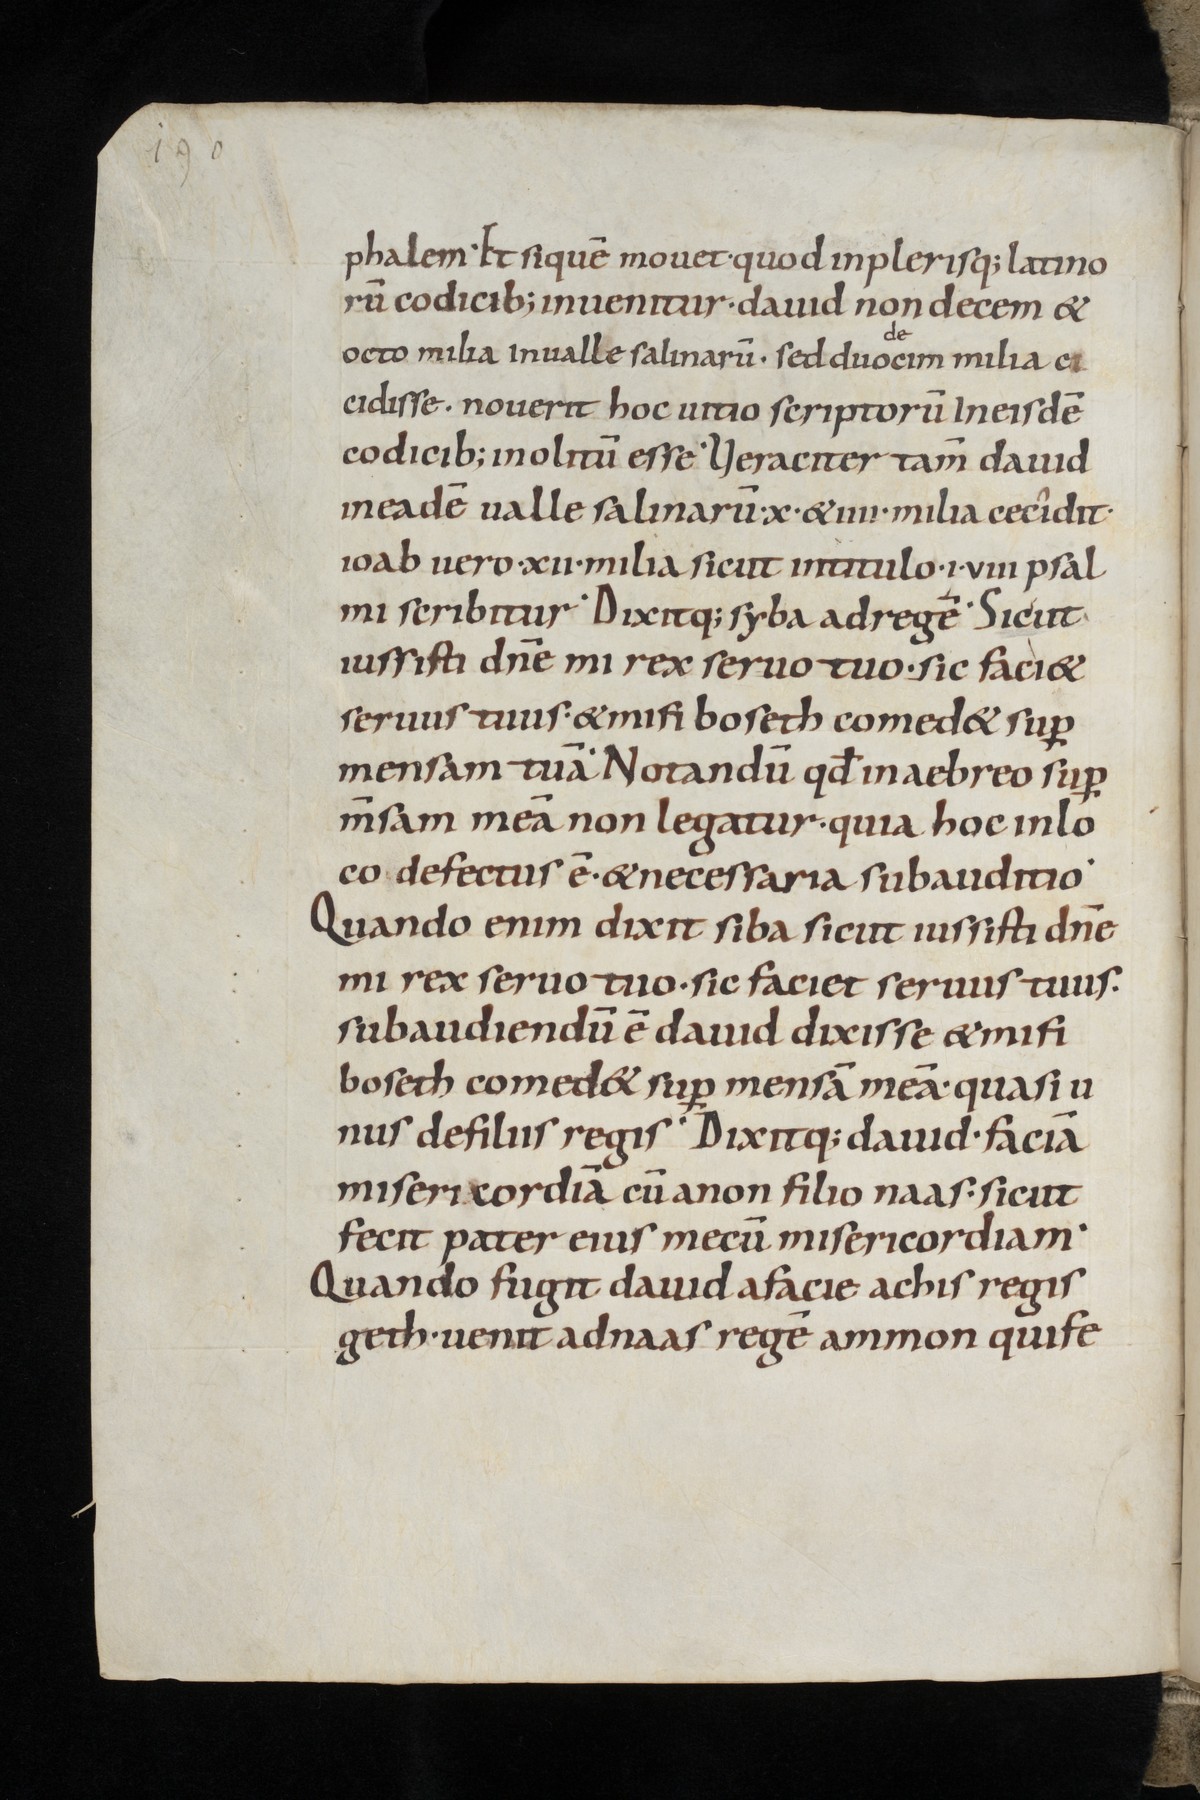 190
phalem· Et siquē mouet· quod inplerisq; latino
rū codicib; inuenitur· dauid non decem &
octo milia inualle salinarū· sed duodecim milia ce
cidisse· nouerit hoc uitio scriptorū Ineisdē
codicib; inolitū esse· Veraciter tam̄ dauid
ineadē ualle salinarū· x· & iiii· milia cecidit·
ioab uero· xii· milia sicut intitulo· l· viiii psal
mi scribitur· Dixitq; syba adregē· Sicut
iussisti dn̄e mi rex seruo tuo· sic faci&
seruus tuus· & mifi boseth comed& suꝑ
mensam tuā· Notandū qđ inaebreo suꝑ
m̄sam meā non legatur· quia hoc inlo
co defectus ē· & necessaria subauditio·
Quando enim dixit siba sicut iussisti dn̄e
mi rex seruo tuo· sic faciet seruus tuus·
subaudiendū ē dauid dixisse & mifi
boseth comed& suꝑ mensā meā· quasi u
nus defiliis regis· Dixitq; dauid· faciā
misericordiā cū anon filio naas· sicut
fecit pater eius mecū misericordiam·
Quando fugit dauid afacie achis regis
geth· uenit adnaas regē ammon quife